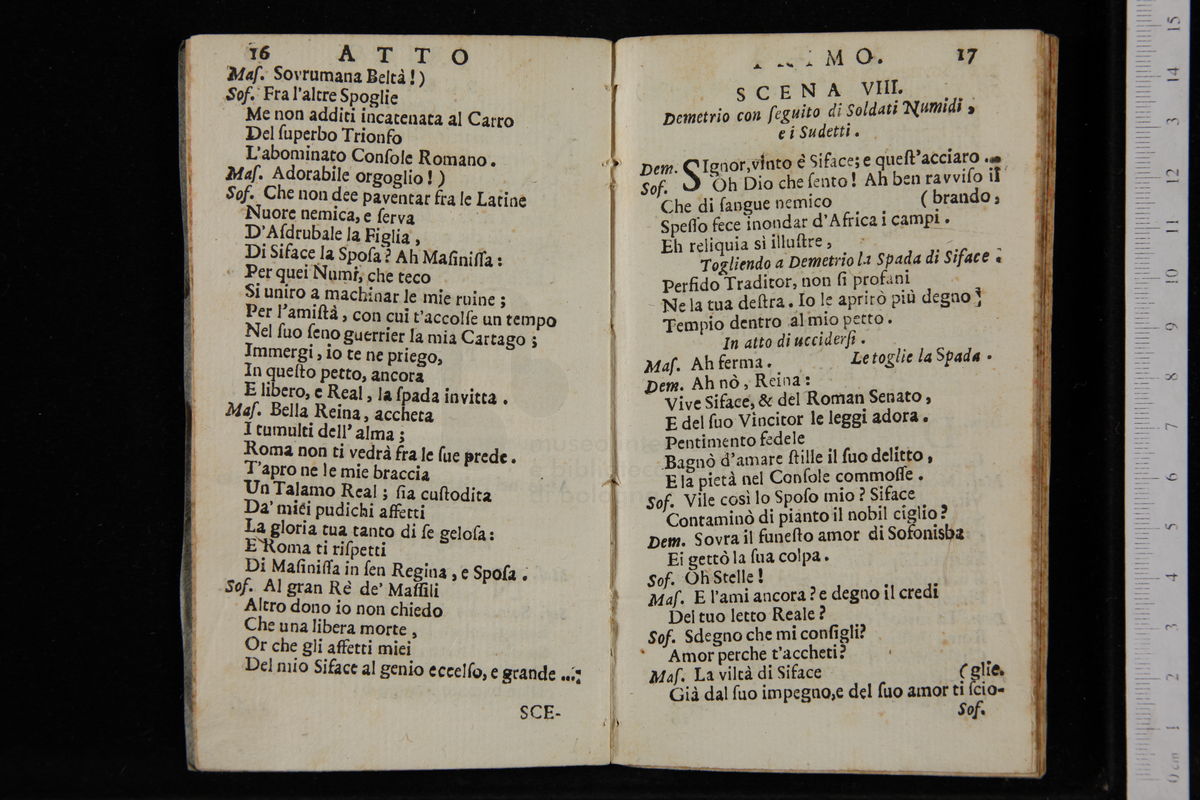 16 ATTO
Maſ. Sovrumana Beltà!)
Sof. Fra l'altre Spoglie
Me non additi incatenata al Carro
Del ſuperbo Trionfo
L'abominato Conſole Romano.
Maſ. Adorabile orgoglio!)
Sof. Che non dee paventar fra le Latine
Nuore nemica, e ſerva
D'Aſdrubale la Figlia,
Di Siface la Spoſa? Ah Maſiniſſa:
Per quei Numi, che teco
Si uniro a machinar le mie ruine;
Per l'amiſtà, con cui t'accolſe un tempo
Nel ſuo ſeno guerrier la mia Cartago;
Immergi, io te ne priego,
In queſto petto, ancora
E libero, e Real, la ſpada invitta.
Maſ. Bella Reina, accheta
I tumulti dell'alma;
Roma non ti vedrà fra le ſue prede.
T'apro ne le mie braccia
Un Talamo Real; ſia cuſtodita
Da' miei pudichi affetti
La gloria tua tanto di ſe geloſa:
E Roma ti riſpetti
Di Maſiniſſa in ſen Regina, e Spoſa.
Sof. Al gran Rè de' Maſſili
Altro dono io non chiedo
Che una libera morte,
Or che gli affetti miei
Del mio Siface al genio eccelſo, e grande ...;
SCE-
IMO. 17
SCENA VIII.
Demetrio con ſeguito di Soldati Numidi,
e i Sudetti.
Dem. SIgnor, vinto è Siface; e queſt'acciaro..
Sof. Oh Dio che ſento! Ah ben ravviſo il
Che di ſangue nemico (brando,
Speſſo fece inondar d'Africa i campi.
Eh reliquia sì illuſtre,
Togliendo a Demetrio la Spada di Siface.
Perfido Traditor, non ſi profani
Ne la tua deſtra. Io le aprirò più degno
Tempio dentro al mio petto.
In atto di ucciderſi.
Maſ. Ah ferma. Le toglie la Spada.
Dem. Ah nò, Reina:
Vive Siface, & del Roman Senato,
E del ſuo Vincitor le leggi adora.
Pentimento fedele
Bagnò d'amare ſtille il ſuo delitto,
E la pietà nel Conſole commoſſe.
Sof. Vile così lo Spoſo mio? Siface
Contaminò di pianto il nobil ciglio?
Dem. Sovra il funeſto amor di Sofonisba
Ei gettò la ſua colpa.
Sof. Oh Stelle!
Maſ. E l'ami ancora? e degno il credi
Del tuo letto Reale?
Sof. Sdegno che mi conſigli?
Amor perche t'accheti?
Maſ. La viltà di Siface (glie.
Già dal ſuo impegno, e del ſuo amor ti ſcio-
Sof.